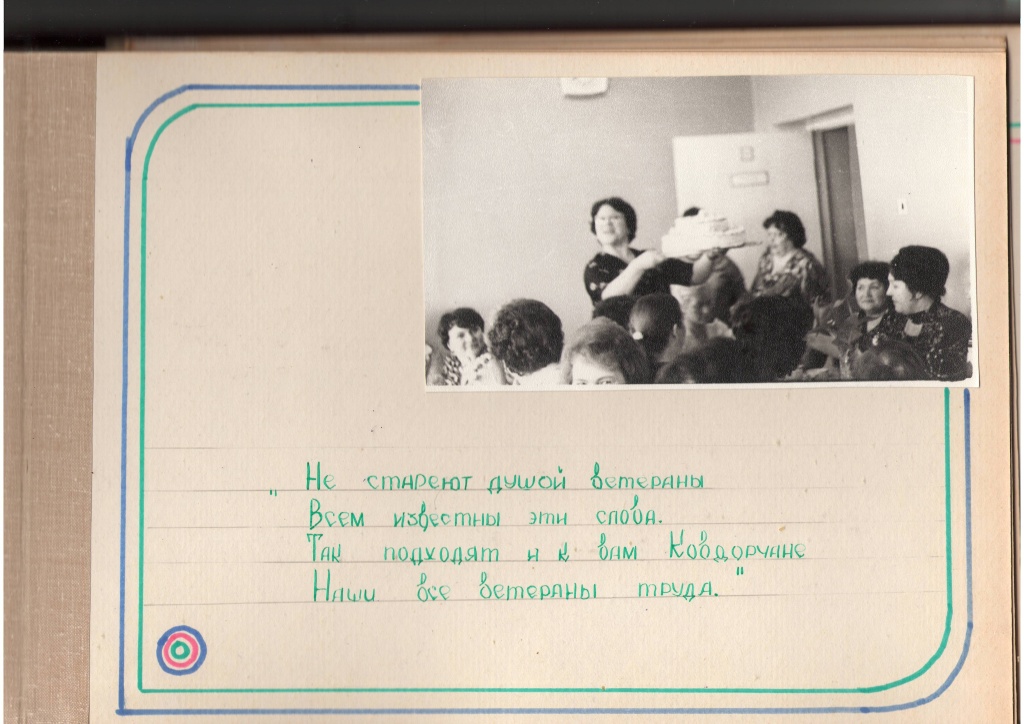 „ Не стареют душой ветераны
Всем известны эти слова.
Так подходят и к вам Ковдорчане
Наши все ветераны труда."